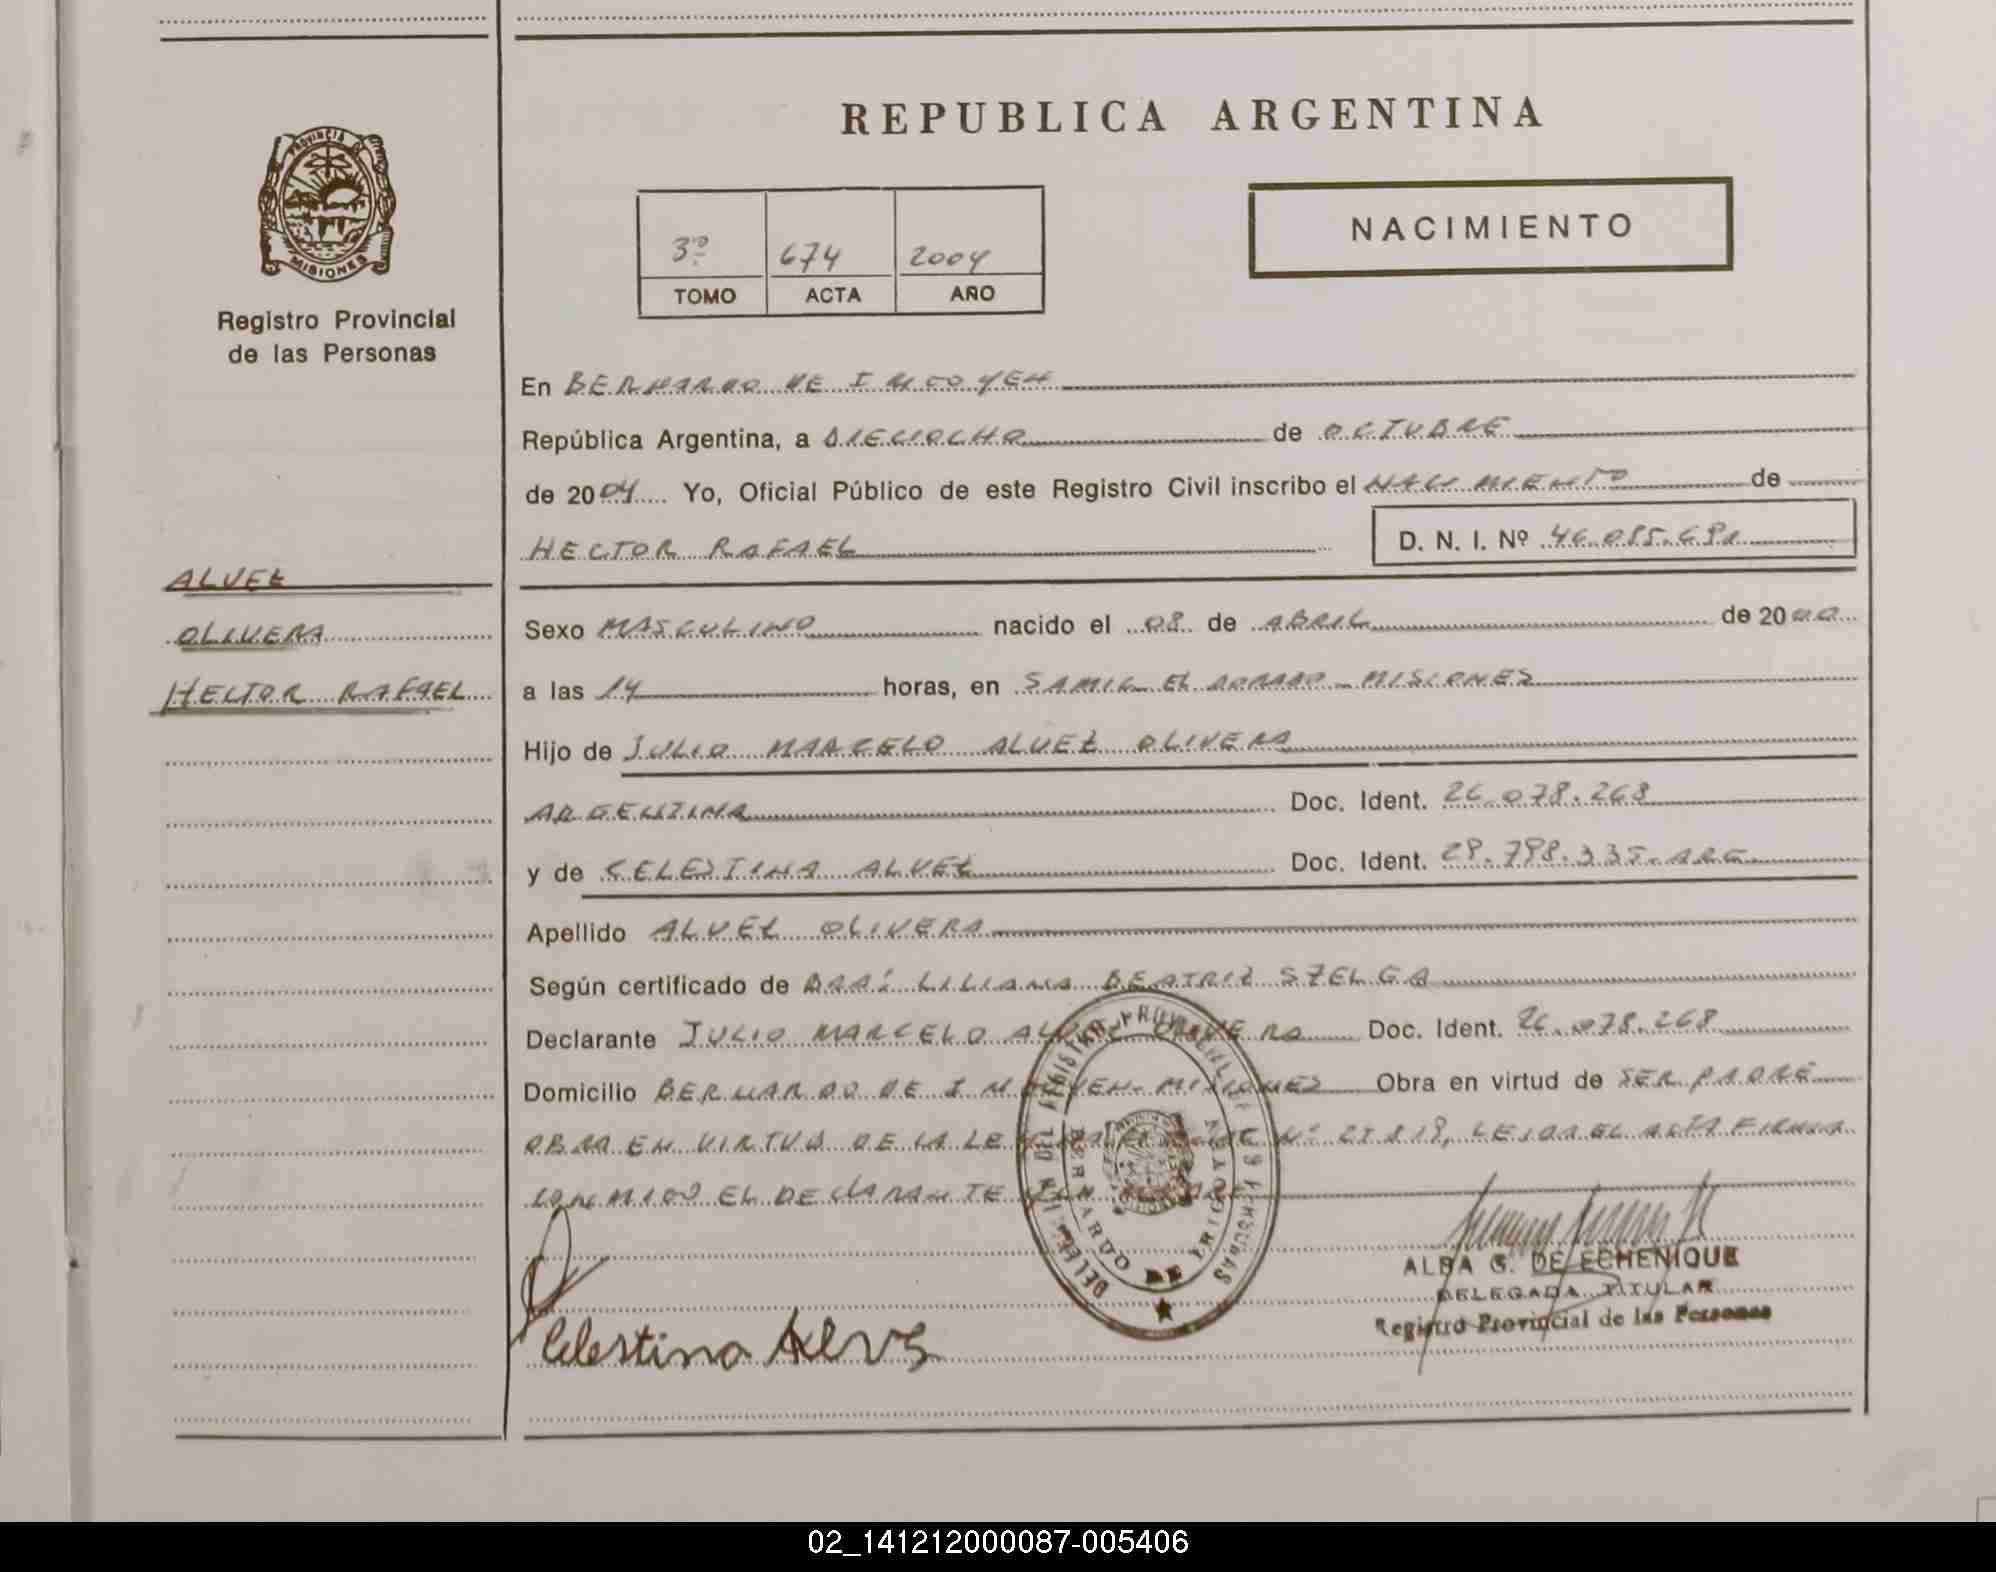 PROVINCIA DE
MISIONES
Registro Provincial
de las Personas
ALVEZ
OLIVERA
HECTOR RAFAEL
REPUBLICA ARGENTINA
3º 674 2004
TOMO ACTA AÑO
NACIMIENTO
En BERNARDO DE IRIGOYEN
República Argentina, a DIECIOCHO de OCTUBRE
de 2004 Yo, Oficial Público de este Registro Civil inscribo el NACIMIENTO de
HECTOR RAFAEL D. N. I. Nº
Sexo MASCULINO nacido el 08 de ABRIL de 2000
a las 14 horas, en SAMIC EL DORADO - MISIONES
Hijo de JULIO MARCELO ALVEZ OLIVERA
ARGENTINA Doc. Ident. 26.078.268
y de CELESTINA ALVEZ Doc. Ident. 29.798.335. ARG
Apellido ALVEZ OLIVERA
Según certificado de DRA: LILIANA BEATRIZ SZELGA
Declarante JULIO MARCELO ALVEZ OLIVERA Doc. Ident. 26.078.268
Domicilio BERNARDO DE IRIGOYEN- MISIONES Obra en virtud de SER PADRE
OBRA EN VIRTUD DE LA LEY Nº 25.819, LEIDA EL ACTA FIRMA
CONMIGO EL DECLARANTE
DELEGACION DEL REGISTRO PROVINCIAL DE LAS PERSONAS
BERNARDO DE IRIGOYEN
Celestina Alves
ALBA G. DE ECHENIQUE
DELEGADA TITULAR
Registro Provincial de las Personas
02_141212000087-005406